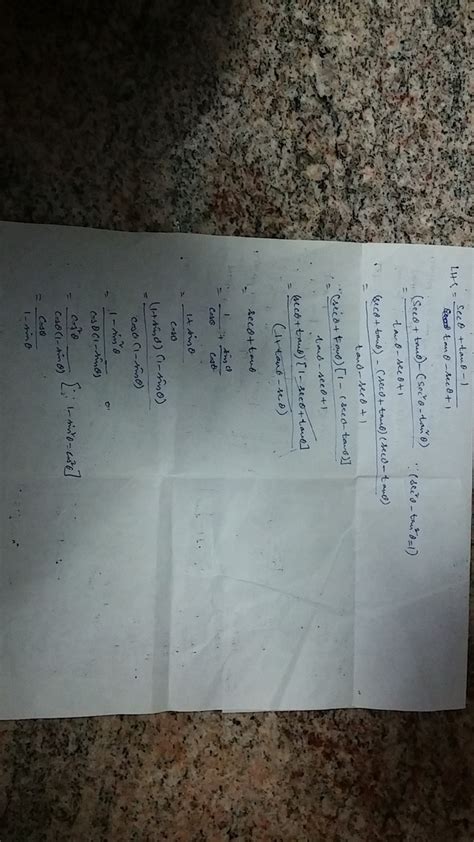 LHS = secθ + tanθ - 1 / tanθ - secθ + 1
= (secθ + tanθ) - (sec²θ - tan²θ) / tanθ - secθ + 1 ∵ (sec²θ - tan²θ = 1)
= (secθ + tanθ) - (secθ + tanθ)(secθ - tanθ) / tanθ - secθ + 1
= (secθ + tanθ)[1 - (secθ - tanθ)] / tanθ - secθ + 1
= (secθ + tanθ)[1 - secθ + tanθ] / (1 + tanθ - secθ)
= secθ + tanθ
= 1/cosθ + sinθ/cosθ
= 1 + sinθ / cosθ
= (1 + sinθ)(1 - sinθ) / cosθ (1 - sinθ)
= 1 - sin²θ / cosθ (1 - sinθ)
= cos²θ / cosθ (1 - sinθ) [∵ 1 - sin²θ = cos²θ]
= cosθ / 1 - sinθ